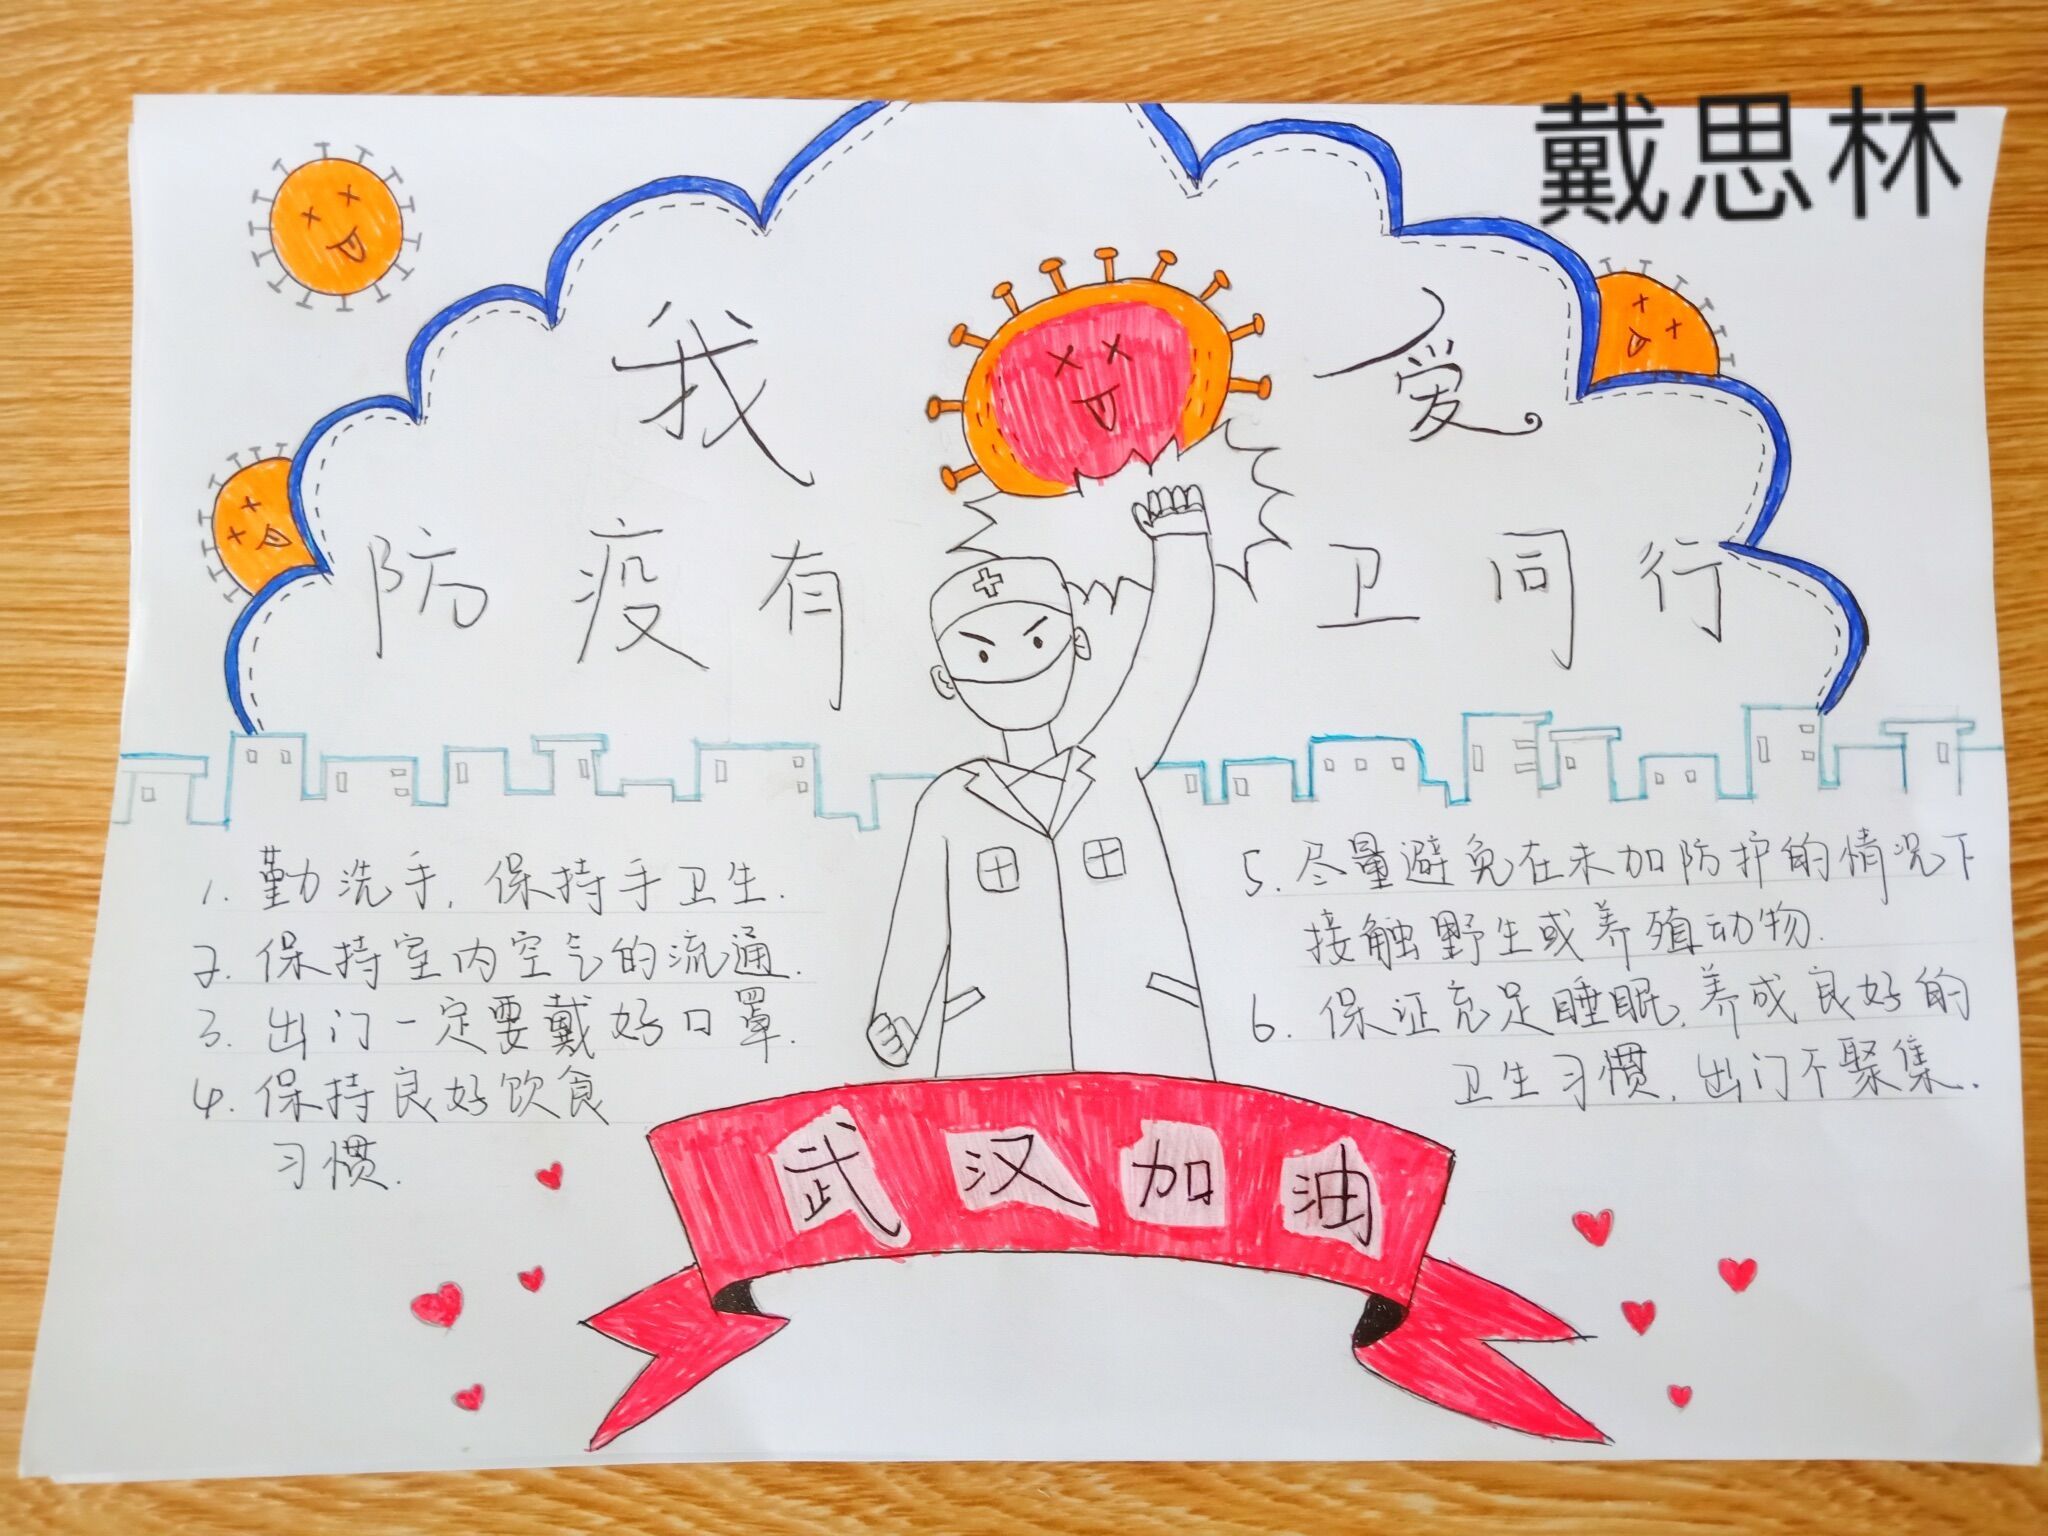 戴思林
我 爱
防疫有 卫同行
1. 勤洗手，保持手卫生.
2. 保持室内空气的流通.
3. 出门一定要戴好口罩.
4. 保持良好饮食
习惯.
5. 尽量避免在未加防护的情况下
接触野生或养殖动物.
6. 保证充足睡眠，养成良好的
卫生习惯，出门不聚集.
武汉加油